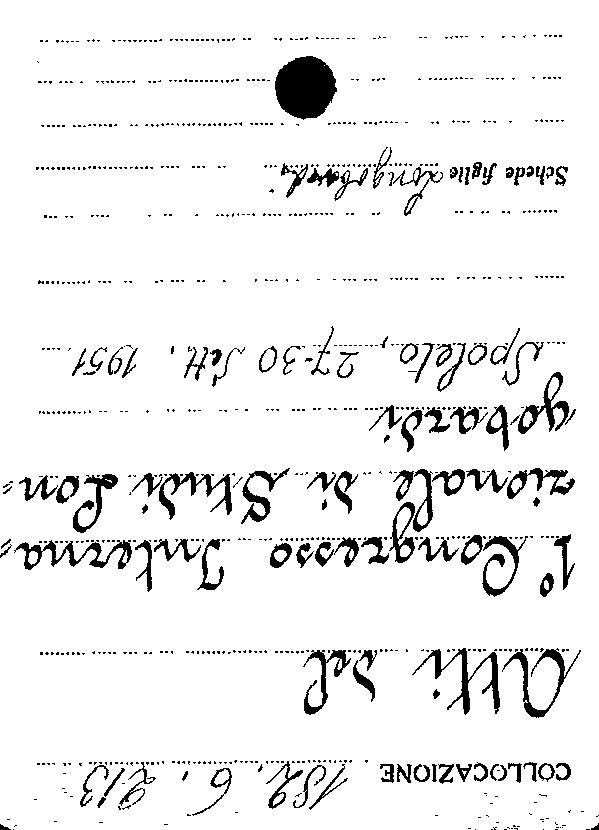 COLLOCAZIONE 182. 6. 213
Atti del
1° Congresso Interna=
zionale di Studi Lon=
gobardi
Spoleto, 27-30 Sett. 1951
Schede figlie Longobardi